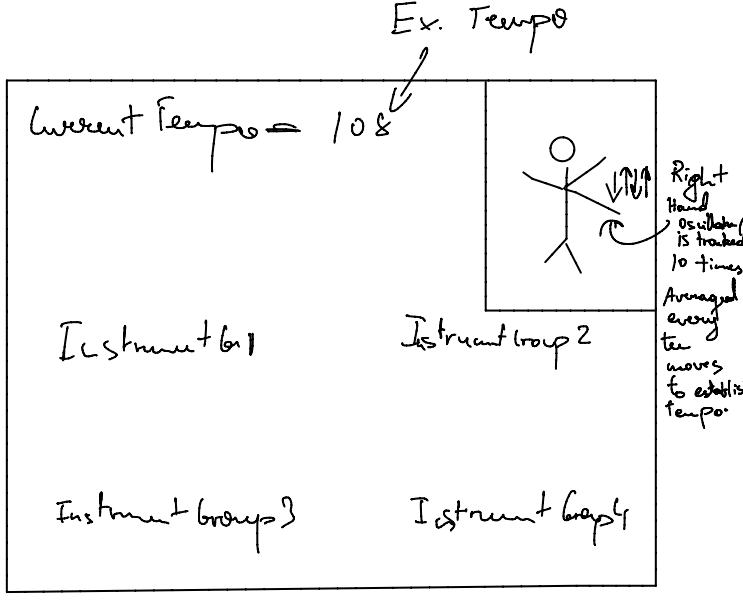 Ex. Tempo
Current Tempo = 108
Right
Hand
Oscillatory
is tracked
10 times
Averaged
every
ten
moves
to establis
tempo.
Instrument Gr 1
Instrument Group 2
Instrument Group 3
Instrument Group 4